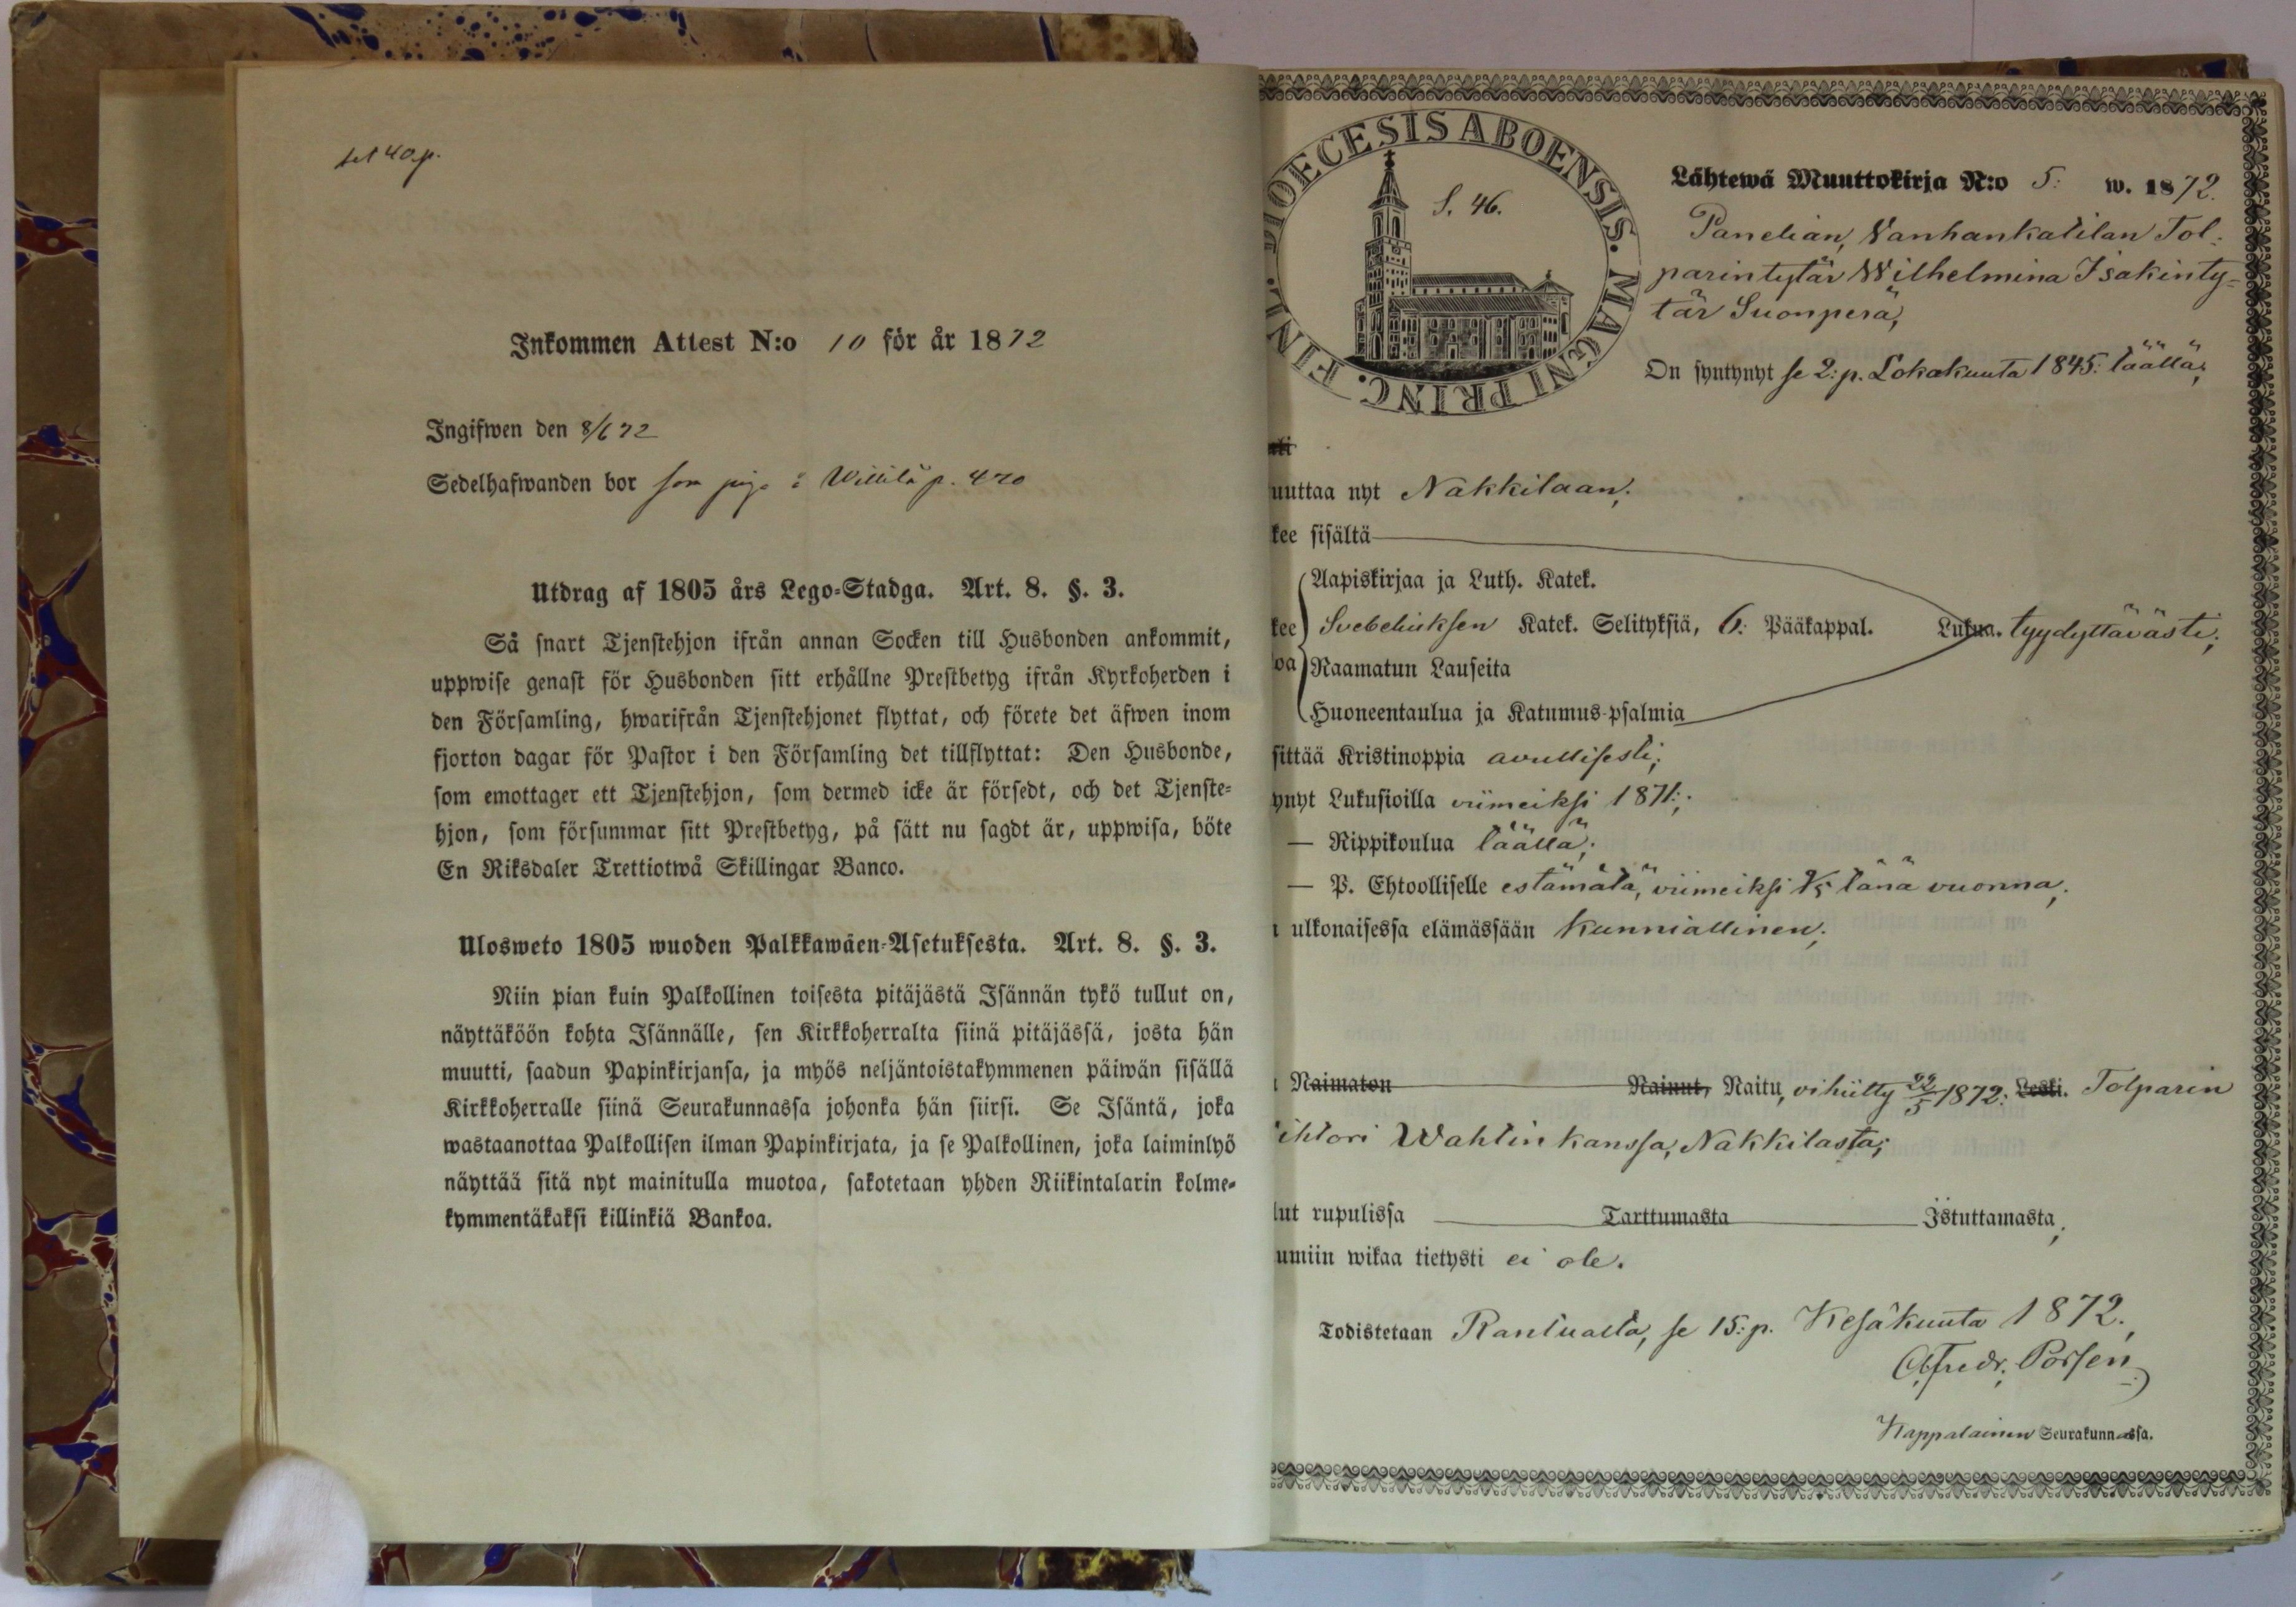 40 p.
Inkommen Attest N:o 10 för år 1872
Ingifwen den 8/6 72
Sedelhafwanden bor som piga i Willilä p. 420
Utdrag af 1805 års Lego-Stadga. Art. 8. §. 3.
Så snart Tjenstehjon ifrån annan Socken till Husbonden ankommit,
uppwise genast för Husbonden sitt erhållne Prestbetyg ifrån Kyrkoherden i
den Församling, hwarifrån Tjenstehjonet flyttat, och förete det äfwen inom
fjorton dagar för Pastor i den Församling det tillflyttat: Den Husbonde,
som emottager ett Tjenstehjon, som dermed icke är försedt, och det Tjenste-
hjon, som försummar sitt Prestbetyg, på sätt nu sagdt är, uppwisa, böte
En Riksdaler Trettiotwå Skillingar Banco.
Ulosweto 1805 wuoden Palkkawäen-Asetuksesta. Art. 8. §. 3.
Niin pian kuin Palkollinen toisesta pitäjästä Isännän tykö tullut on,
näyttäköön kohta Isännälle, sen Kirkkoherralta siinä pitäjässä, josta hän
muutti, saadun Papinkirjansa, ja myös neljäntoistakymmenen päiwän sisällä
Kirkkoherralle siinä Seurakunnassa johonka hän siirsi. Se Isäntä, joka
wastaanottaa Palkollisen ilman Papinkirjata, ja se Palkollinen, joka laiminlyö
näyttää sitä nyt mainitulla muotoa, sakotetaan yhden Riikintalarin kolme-
kymmentäkaksi killinkiä Bankoa.
DIOECESIS ABOENSIS. MAGNI PRINC. FINL.
S. 46.
Lähtewä Muuttokirja N:o 5: w. 1872.
Panelian, Vanhankatilan Tol-
parintytär Wilhelmina Isakinty-
tär Suonperä,
On syntynyt se 2:p. Lokakuuta 1845: täällä;
uuttaa nyt Nakkilaan;
kee sisältä
Aapiskirjaa ja Luth. Katek.
kee Svebeliuksen Katek. Selityksiä, 6: Pääkappal. Lukua. tyydyttävästi;
oa Raamatun Lauseita
Huoneentaulua ja Katumus-psalmia
sittää Kristinoppia avullisesti;
ynyt Lukusioilla viimeiksi 1871:;
— Rippikoulua täällä;
— P. Ehtoolliselle estämätä, viimeiksi tänä vuonna;
ulkonaisessa elämässään kunniallinen;
Naimaton Nainut, Naitu, vihitty 22/5 1872: Leski. Tolparin
ihtori Wahlin kanssa, Nakkilasta;
lut rupulissa Tarttumasta Istuttamasta;
umiin wikaa tietysti ei ole.
Todistetaan se 15:p. Kesäkuuta 1872.
Fredr. Porsen
Kappalainen Seurakunnassa.